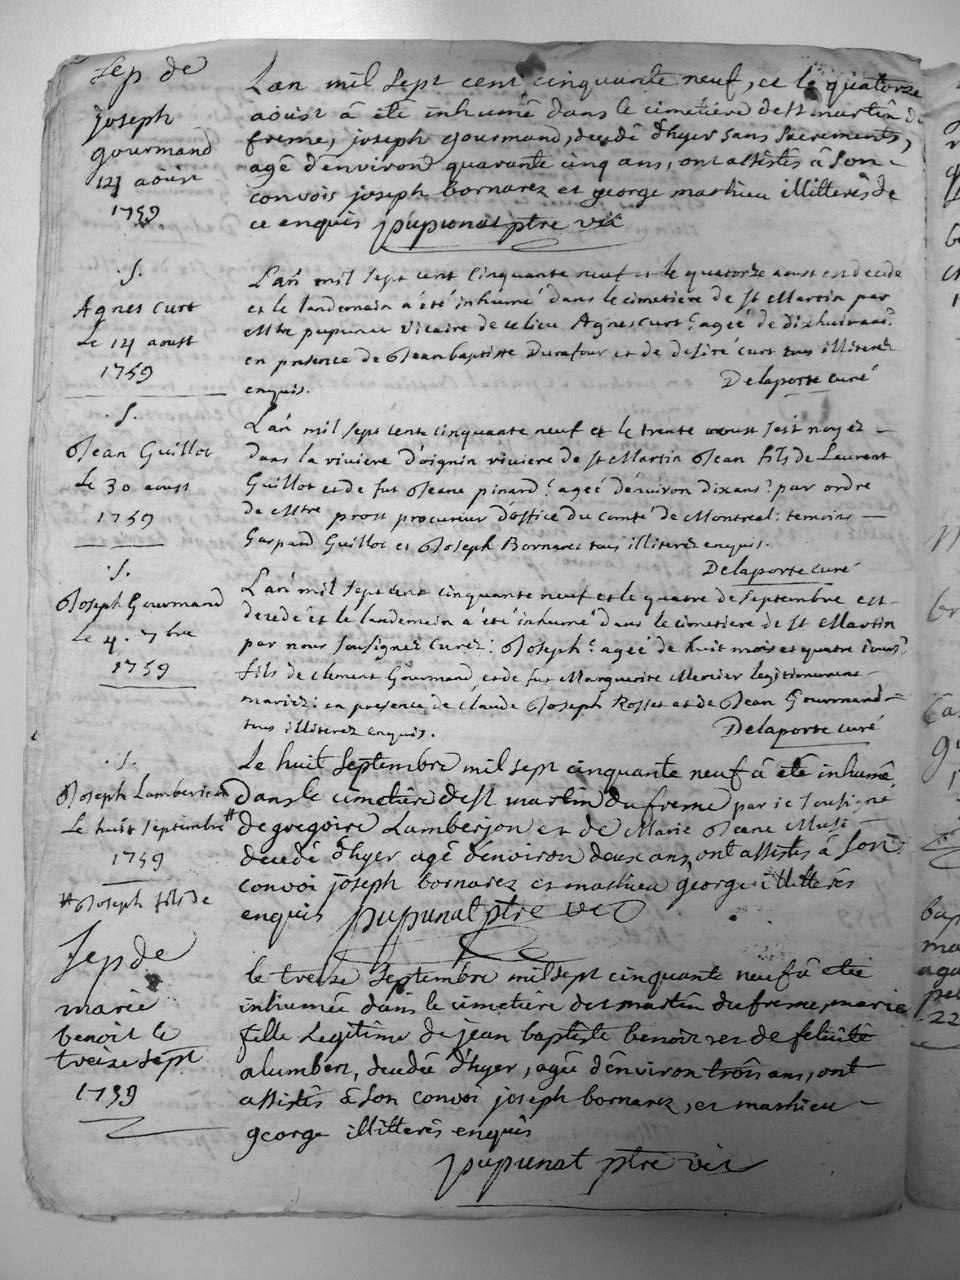 Sep de
Joseph
gourmand
14 aoust
1759
L'an mil sept cent cinquante neuf, et le quatorze
aoust â êtê inhumê dans le cimetiere de st martin du
freme, joseph gourmand, decedê d'hyer sans sacrements,
agê d'environ quarante cinq ans, ont assistês â son
convois joseph bornarez et george mathieu illitterês de
ce enquis pupunat ptre vic
.S.
Agnes Curt
Le 14 aoust
1759
L'an mil sept cent cinquante neuf et le quatorze aoust est decede
et le landemain a été inhumé dans le cimetiere de st Martin par
Mtre pupunat vicaire de ce lieu Agnes Curt : agée de dixhuit ans :
en presence de Jean baptiste Durafour et de desiré curt tous illiterez
enquis. Delaporte curé
.S.
Jean Guillot
Le 30 aoust
1759
L'an mil sept cent cinquante neuf et le trente aoust s'est noyez
dans la riviere d'oignin riviere de st Martin Jean fils de Laurent
Guillot et de fut Jeane pinard : agée d'environ dix ans : par ordre
de Mtre prost procureur d'office du comté de Montreal : temoins
Gaspard Guillot et Joseph Bornarez tous illiterez enquis.
Delaporte curé
.S.
Joseph Gourmand
Le 4. 7bre
1759
L'an mil sept cent cinquante neuf et le quatre de septembre est
decedé et le landemain à été inhumé dans le cimetiere de st Martin
par nous soussignez curez : Joseph : agée de huit mois et quatre jours :
fils de clement Gourmand et de fut Marguerite Mercier legitimement
mariez : en presence de claude Joseph Rosset et de Jean Gourmand
tous illiterez enquis. Delaporte curé
.S.
Joseph Lamberjon
Le huit septembre #
1759
# Joseph fils de
Le huit septembre mil sept cinquante neuf â êtê inhumê
dans le cimetiere de st martin du freme par je sousigné
de gregoire Lamberjon et de Marie Jeane
decedê d'hyer agê d'environ deux ans, ont assistês â son
convoi joseph bornarez et mathieu george illitterês
enquis pupunat ptre vic
Sep de
marie
benoit le
treize sept
1759
le treize septembre mil sept cinquante neuf â êtê
inhumêe dans le cimetiere de st martin du freme, marie
fille legitime de jean baptiste benoit et de felicitê
alumbert, decedêe d'hyer, agêe d'environ trois ans, ont
assistês â son convoi joseph bornarez, et mathieu
george illitterês enquis
pupunat ptre vic